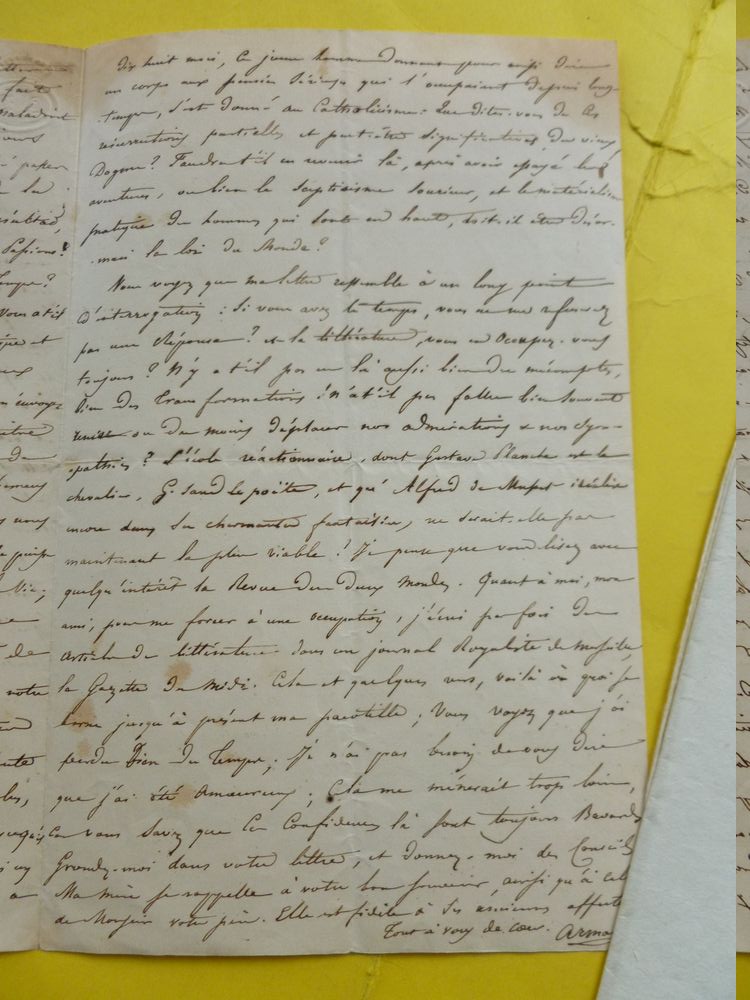 dix huit mois, ce jeune homme donnant pour ainsi dire
un corps aux pensées sérieuses qui l'occupaient depuis long-
temps, s'est donné au Catholicisme. Que dites-vous de ces
résurrections partielles et peut-être significatives du vieux
Dogme? Faudra-t'il en revenir là, après avoir essayé les
aventures, ou bien le scepticisme souriant, et le matérialisme
pratique des hommes qui sont en haut, doit-il être désor-
mais la loi du Monde?
Vous voyez que ma lettre ressemble à un long point
d'interrogation; si vous avez le temps, vous ne me refuserez
pas une réponse? et la littérature, vous en occupez-vous
toujours? N'y a t'il pas eu là aussi bien des mécomptes,
bien des transformations! n'a t'il pas fallu bien souvent
ou du moins déplacer nos admirations & nos sym-
pathies? L'école réactionnaire, dont Gustave Planche est le
chevalier, G. Sand le poëte, et qu'Alfred de Musset
encore dans ses charmantes fantaisies, ne serait-elle pas
maintenant la plus viable! Je pense que vous lisez avec
quelqu'intérêt la Revue des deux Mondes. Quant à moi, mon
ami, pour me forcer à une occupation, j'écris parfois des
articles de littérature dans un journal Royaliste de Marseille,
la Gazette du Midi. Cela et quelques vers, voilà à quoi se
borne jusqu'à présent ma pacotille; Vous voyez que j'ai
perdu bien du temps; Je n'ai pas besoin de vous dire
que j'ai été amoureux; Cela me mènerait trop loin,
car vous savez que ces confidences là sont toujours Bavardes
Grondez-moi dans votre lettre, et donnez-moi des Conseils
Ma mère se rappelle à votre bon souvenir, ainsi qu'à celui
de Monsieur votre père. Elle est fidèle à ses anciennes affections
Tout à vous de cœur. Arma